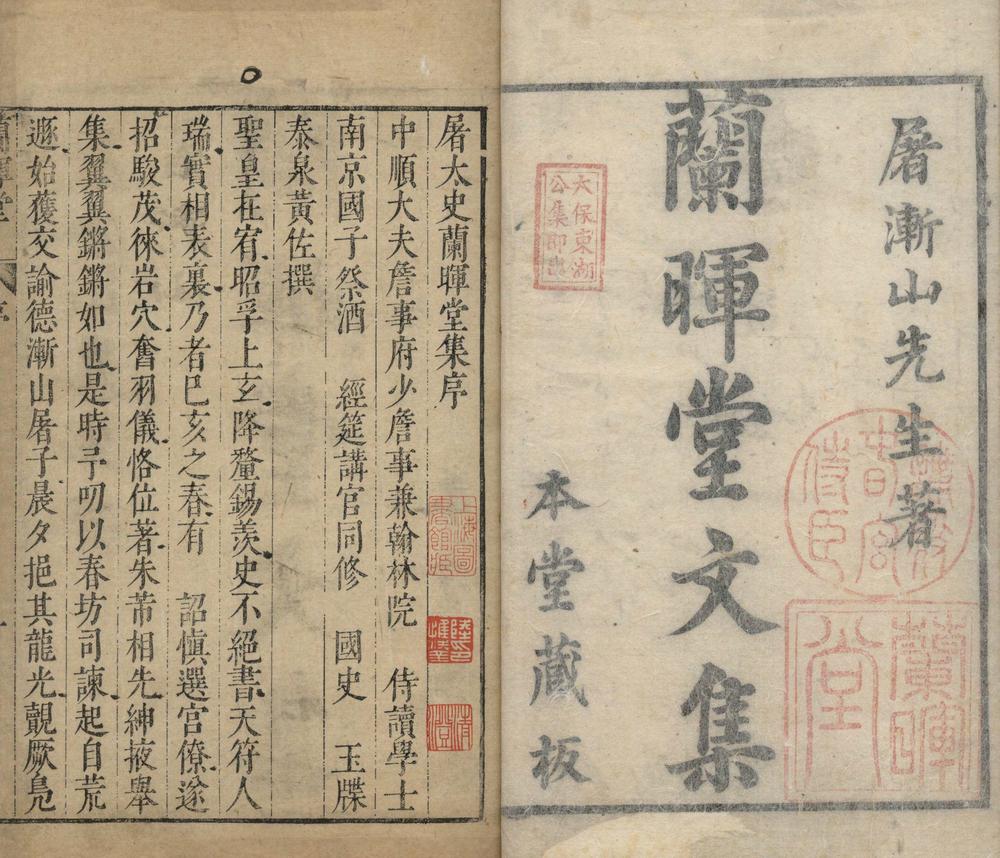 屠漸山先生著
蘭暉堂文集
本堂藏板
蘭暉
堂
屠太史蘭暉堂集序
中順大夫詹事府少詹事兼翰林院 侍讀學士
南京國子祭酒 經筵講官同修 國史 玉牒
泰泉黃佐撰
聖皇在宥昭孚上玄降釐錫羨史不絕書天符人
瑞實相表裏乃者巳亥之春有 詔慎選宮僚遂
招駿茂徠岩穴奮羽儀恪位著朱芾相先紳掖舉
集翼翼鏘鏘如也是時予叨以春坊司諫起自荒
遯始獲交諭德漸山屠子晨夕挹其龍光覿厥鳧
上海圖
書館藏